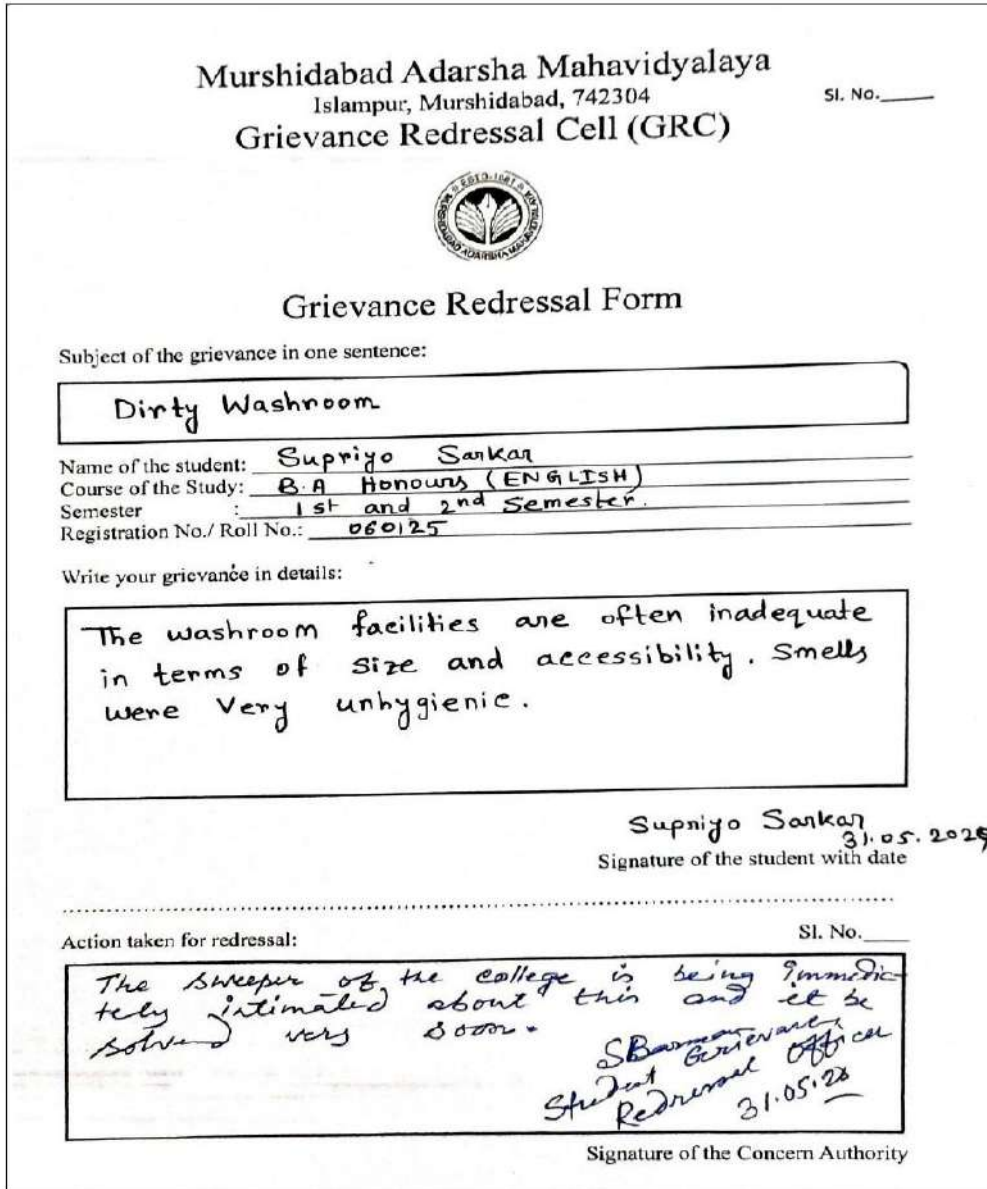 Murshidabad Adarsha Mahavidyalaya
Islampur, Murshidabad, 742304
Sl. No.
Grievance Redressal Cell (GRC)
ESTD-1981
MURSHIDABAD ADARSHA MAHAVIDYALAYA
Grievance Redressal Form
Subject of the grievance in one sentence:
Dirty Washroom
Name of the student: Supriyo Sarkar
Course of the Study: B.A Honours (ENGLISH)
Semester : 1st and 2nd Semester.
Registration No./ Roll No.: 060125
Write your grievance in details:
The washroom facilities are often inadequate
in terms of size and accessibility. Smells
were Very unhygienic.
Supriyo Sarkar
31.05.202
Signature of the student with date
Action taken for redressal:
Sl. No.
The sweeper of the college is being immedia-
tely intimated about this and it be
solved very soon.
SBarman
Student Grievance
Redressal Officer
31.05.
Signature of the Concern Authority